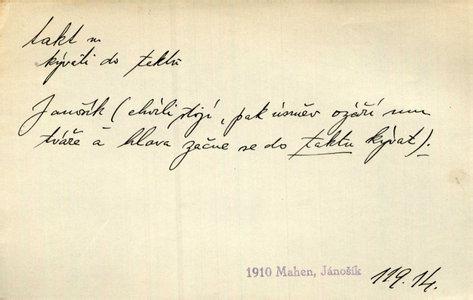 takt m
kývati do taktu
Janošík (chvíli stojí, pak úsměv ozáří mu
tváře a hlava začne se do taktu kývat).
1910 Mahen, Jánošík
119.14.